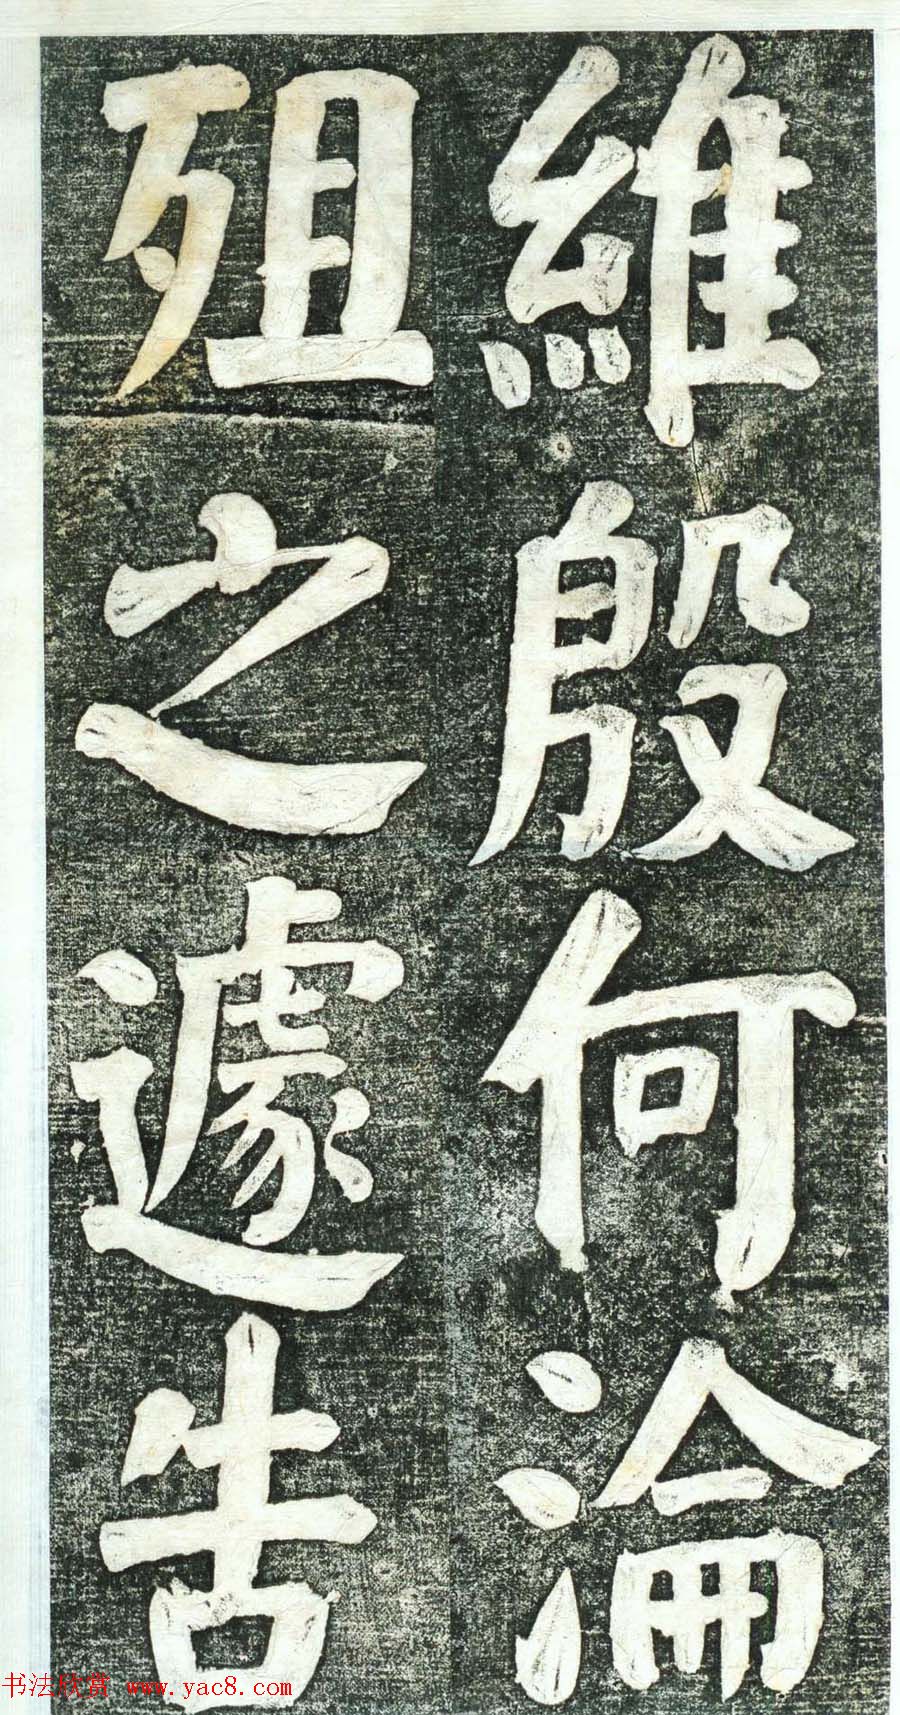 維殷何淪
殂之遽告
书法欣赏 www.yac8.com